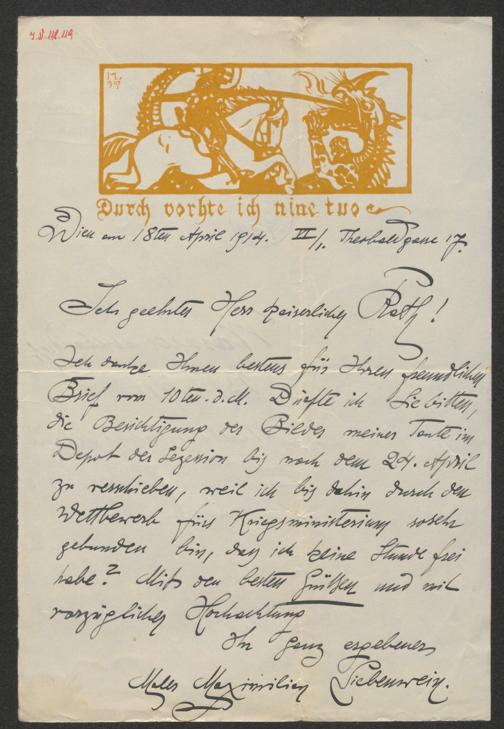 J.N. 118.119
Durch vorhte ich nine tuo
Wien am 18ten April 1914. VI/1. Theobaldgasse 17.
Sehr geehrter Herr kaiserlicher Rath!
Ich danke Ihnen bestens für Ihren freundlichen
Brief vom 10ten d.M. Dürfte ich Sie bitten,
die Besichtigung des Bildes meiner Tante im
Depot der Sezession bis nach dem 24. April
zu verschieben, weil ich bis dahin durch den
Wettbewerb fürs Kriegsministerium so sehr
gebunden bin, das ich keine Stunde frei
habe? Mit den besten Grüßen und mit
vorzüglicher Hochachtung
Ihr ganz ergebener
Maler Maximilian Liebenwein.